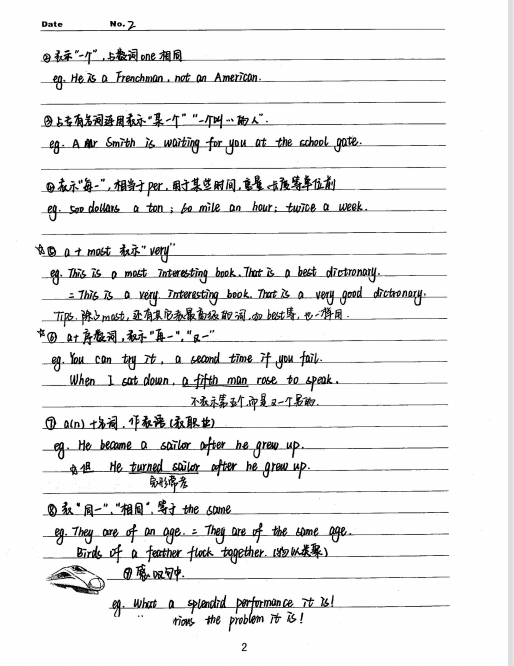 Date No. 2
② 表示"一个",与数词one相同
eg. He is a Frenchman, not an American.
③ 与专有名词连用表示"某一个" "一个叫…的人".
eg. A Mr Smith is waiting for you at the school gate.
④ 表示"每一",相当于per,用于某些时间,重量,长度等单位前
eg. 500 dollars a ton; 60 mile an hour; twice a week.
☆⑤ a + most 表示"very"
eg. This is a most interesting book. That is a best dictronary.
= This is a very interesting book. That is a very good dictronary.
Tips. 除了most,还有其它表最高级的词,如best等,也一样用.
☆⑥ a+序数词,表示"再一","又一"
eg. You can try it, a second time if you fail.
When I sat down, a fifth man rose to speak.
不表示第五个,而是又一个
⑦ a(n) +名词,作表语(表职业)
eg. He became a sailor after he grew up.
☆但 He turned sailor after he grew up.
⑧ 表"同一","相同",等于 the same
eg. They are of an age. = They are of the same age.
Birds of a feather flock together. (物以类聚)
⑨ 感叹句中.
eg. What a splendid performance it is!
the problem it is!
2